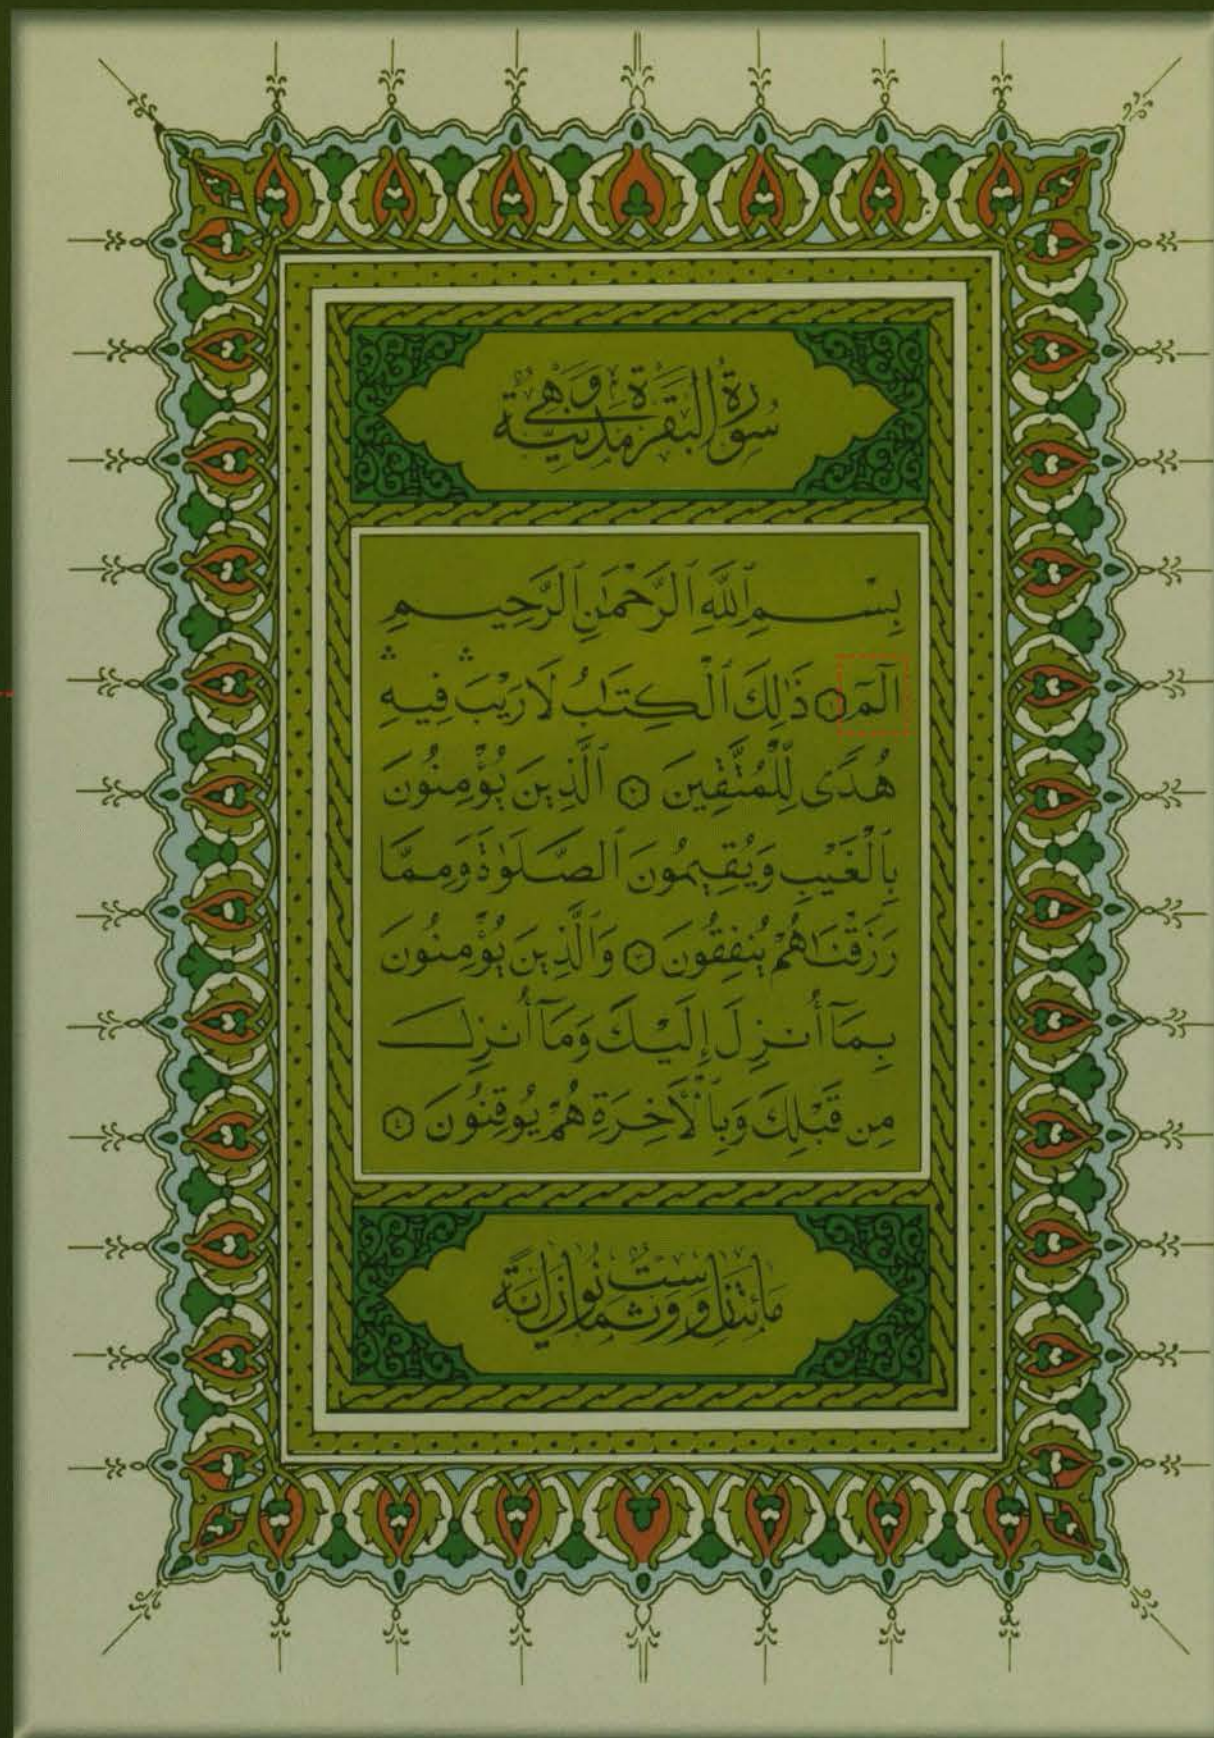 سُورَةُ البَقَرَةِ وَهِيَ مَدَنِيَّة
بِسْمِ ٱللَّهِ ٱلرَّحْمَٰنِ ٱلرَّحِيمِ
الٓمٓ ۝ ذَٰلِكَ ٱلْكِتَابُ لَا رَيْبَ ۛ فِيهِ ۛ
هُدًى لِّلْمُتَّقِينَ ۝٢ ٱلَّذِينَ يُؤْمِنُونَ
بِٱلْغَيْبِ وَيُقِيمُونَ ٱلصَّلَوٰةَ وَمِمَّا
رَزَقْنَاهُمْ يُنفِقُونَ ۝٣ وَٱلَّذِينَ يُؤْمِنُونَ
بِمَآ أُنزِلَ إِلَيْكَ وَمَآ أُنزِلَ
مِن قَبْلِكَ وَبِٱلْأَخِرَةِ هُمْ يُوقِنُونَ ۝٤
مائتان وست وثمانون اية